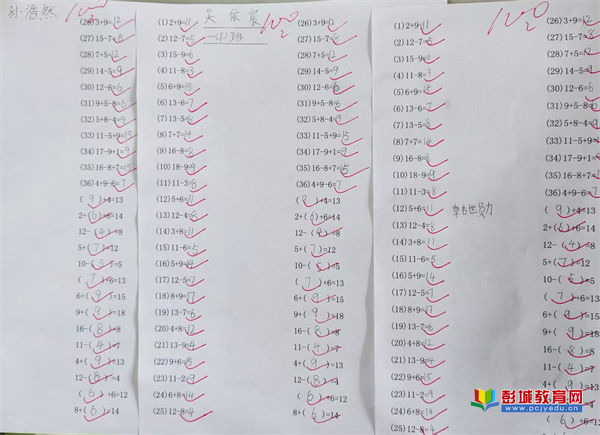 孙浩然
100
(26) 3+9=12
(27) 15-7=8
(28) 7+5=12
(29) 14-5=9
(30) 12-6=6
(31) 9+5-8=6
(32) 5+8-4=9
(33) 11-5+9=15
(34) 17-9+1=9
(35) 16-8+7=15
(36) 4+9-6=7
( 9 )+4=13
2+( 6 )+6=14
12-( 4 )=8
5+( 7 )=12
10-( 5 )=5
( 7 )+6=13
6+( 9 )=15
9+( 9 )=18
16-( 8 )=8
11-( 4 )=7
4+( 9 )=13
12-( 8 )=4
( 6 )+6=12
8+( 6 )=14
100
一(4)班
(1) 2+9=11
(2) 12-7=5
(3) 15-9=6
(4) 11-8=3
(5) 6+9=15
(6) 13-6=7
(7) 13-5=8
(8) 7+7=14
(9) 16-8=8
(10) 18-9=9
(11) 11-3=8
(12) 5+6=11
(13) 12-4=8
(14) 3+8=11
(15) 11-6=5
(16) 5+9=14
(17) 12-5=7
(18) 8+9=17
(19) 13-7=6
(20) 4+8=12
(21) 13-9=4
(22) 9+6=15
(23) 11-2=9
(24) 6+8=14
(25) 12-8=4
(26) 3+9=12
(27) 15-7=8
(28) 7+5=12
(29) 14-5=9
(30) 12-6=6
(31) 9+5-8=6
(32) 5+8-4=9
(33) 11-5+9=15
(34) 17-9+1=9
(35) 16-8+7=15
(36) 4+9-6=7
( 9 )+4=13
2+( 6 )+6=14
12-( 4 )=8
5+( 7 )=12
10-( 5 )=5
( 7 )+6=13
6+( 9 )=15
9+( 9 )=18
16-( 8 )=8
11-( 4 )=7
4+( 9 )=13
12-( 8 )=4
( 6 )+6=12
8+( 6 )=14
100
(1) 2+9=11
(2) 12-7=5
(3) 15-9=6
(4) 11-8=3
(5) 6+9=15
(6) 13-6=7
(7) 13-5=8
(8) 7+7=14
(9) 16-8=8
(10) 18-9=9
(11) 11-3=8
(12) 5+6=11
(13) 12-4=8
(14) 3+8=11
(15) 11-6=5
(16) 5+9=14
(17) 12-5=7
(18) 8+9=17
(19) 13-7=6
(20) 4+8=12
(21) 13-9=4
(22) 9+6=15
(23) 11-2=9
(24) 6+8=14
(25) 12-8=4
(26) 3+9=12
(27) 15-7=8
(28) 7+5=12
(29) 14-5=9
(30) 12-6=6
(31) 9+5-8=6
(32) 5+8-4=9
(33) 11-5+9=15
(34) 17-9+1=9
(35) 16-8+7=15
(36) 4+9-6=7
( 9 )+4=13
2+( 6 )+6=14
12-( 4 )=8
5+( 7 )=12
10-( 5 )=5
( 7 )+6=13
6+( 9 )=15
9+( 9 )=18
16-( 8 )=8
11-( 4 )=7
4+( 9 )=13
彭城教育网
www.pcjyedu.cn